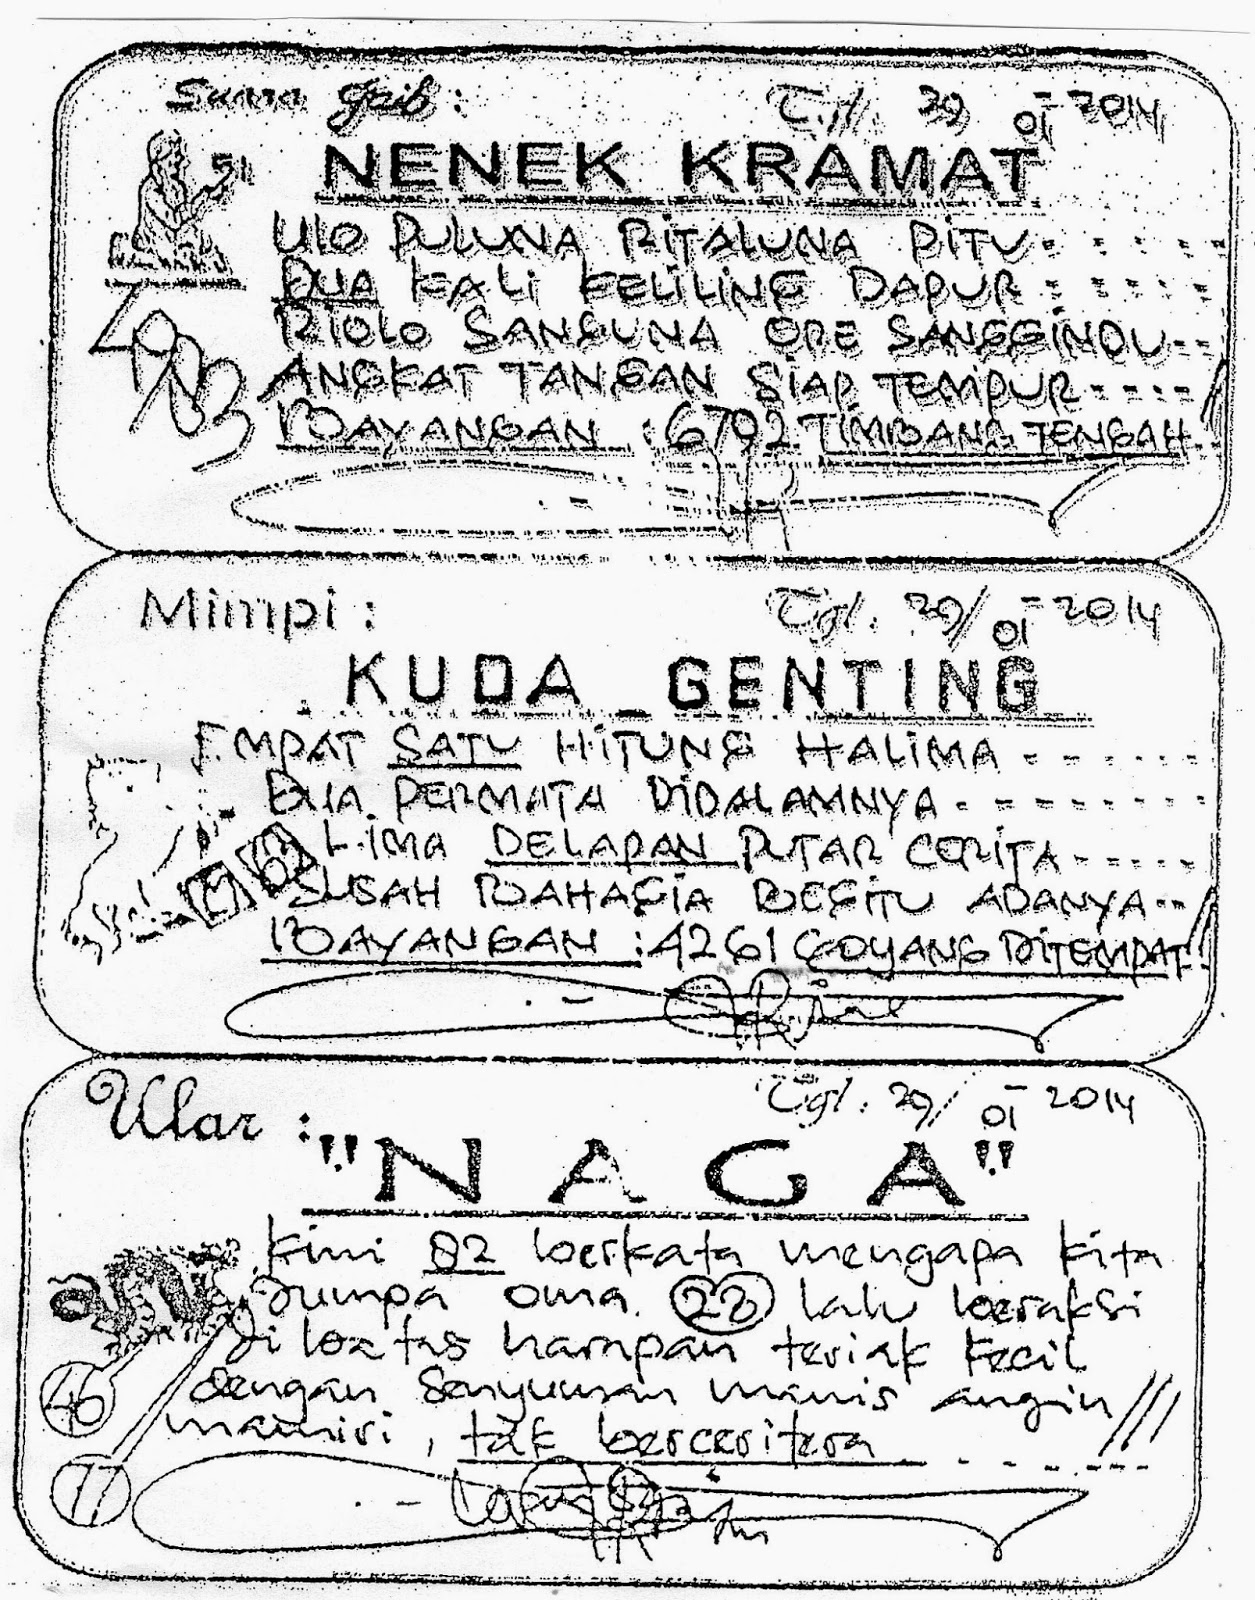 Suara Gaib :
Tgl. 29/01-2014
NENEK KRAMAT
ULO PULUNA RITALUNA PITU
DUA KALI KELILING DAPUR
RIOLO SANGUNA ORE SANGGINDU
ANGKAT TANGAN SIAP TEMPUR
BAYANGAN : 6792 TIMBANG TENGAH
Mimpi :
Tgl. 29/01-2014
KUDA GENTING
EMPAT SATU HITUNG HALIMA
DUA PERMATA DIDALAMNYA
LIMA DELAPAN PUTAR CERITA
SUSAH BAHAGIA BEGITU ADANYA
BAYANGAN : 4261 GOYANG DITEMPAT
Ular :
Tgl. 29/01-2014
"NAGA"
Kini 82 berkata mengapa kita
jumpa oma 23 lalu beraksi
di loatas harapan teriak kecil
46
dengan senyuman manis angin
mamiri, tak berceritera
77